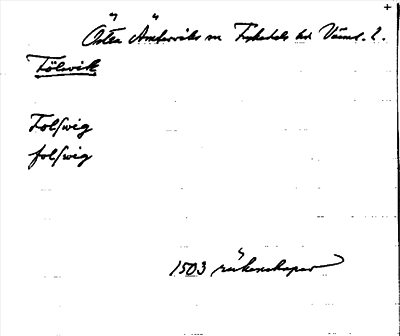 Östra Ämterviks sn Fryksdals hd Värml. l.
Fölsvik
Folſwig
folſwig
1503 räkenskaper